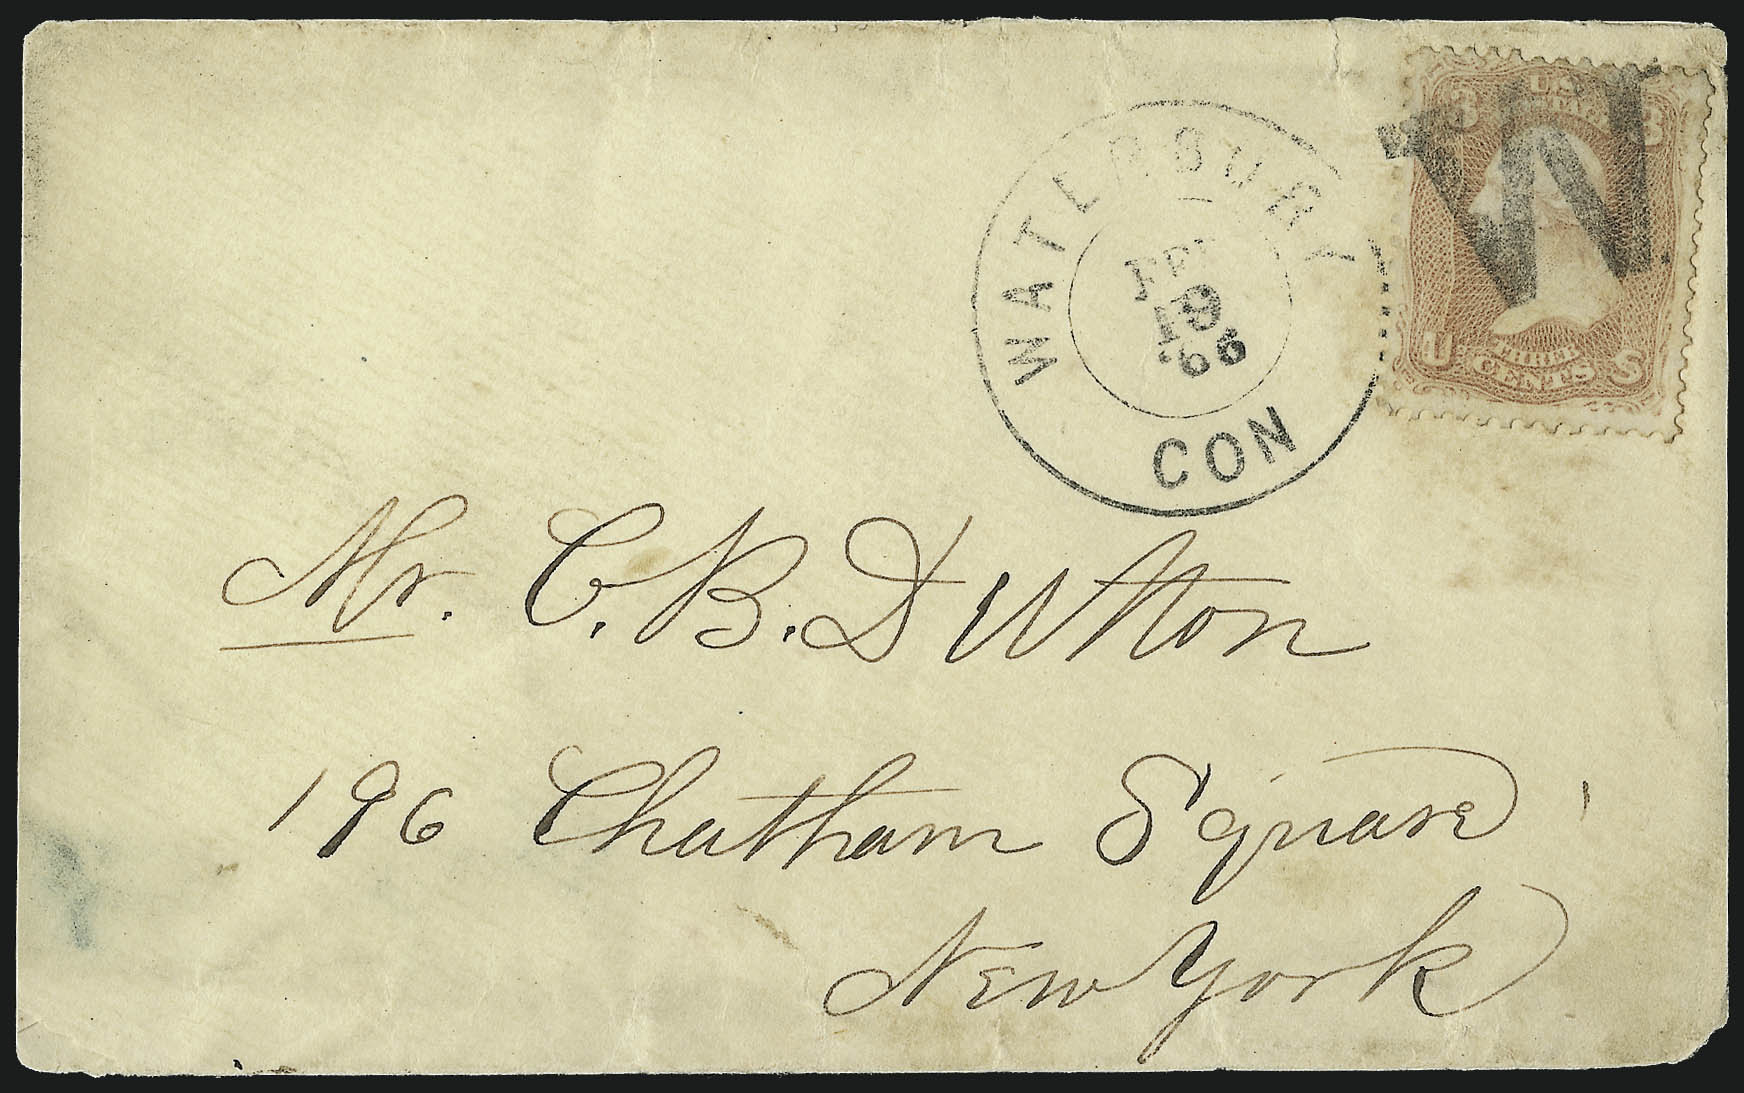 WATERBURY
FEB
19
'66
CON
U.S.
POSTAGE
3 3
U THREE S
CENTS
W
Mr. C. B. Dutton
196 Chatham Square
New York